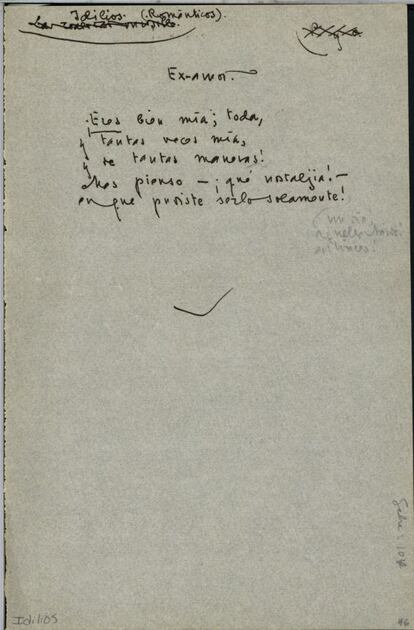 Idilios. (Románticos).
Ex-amor.
¡Eres bien mía; toda,
y tantas veces mía,
y de tantas maneras!
Mas pienso —¡qué nostaljia!—
en que pudiste serlo solamente!
Idilios
46